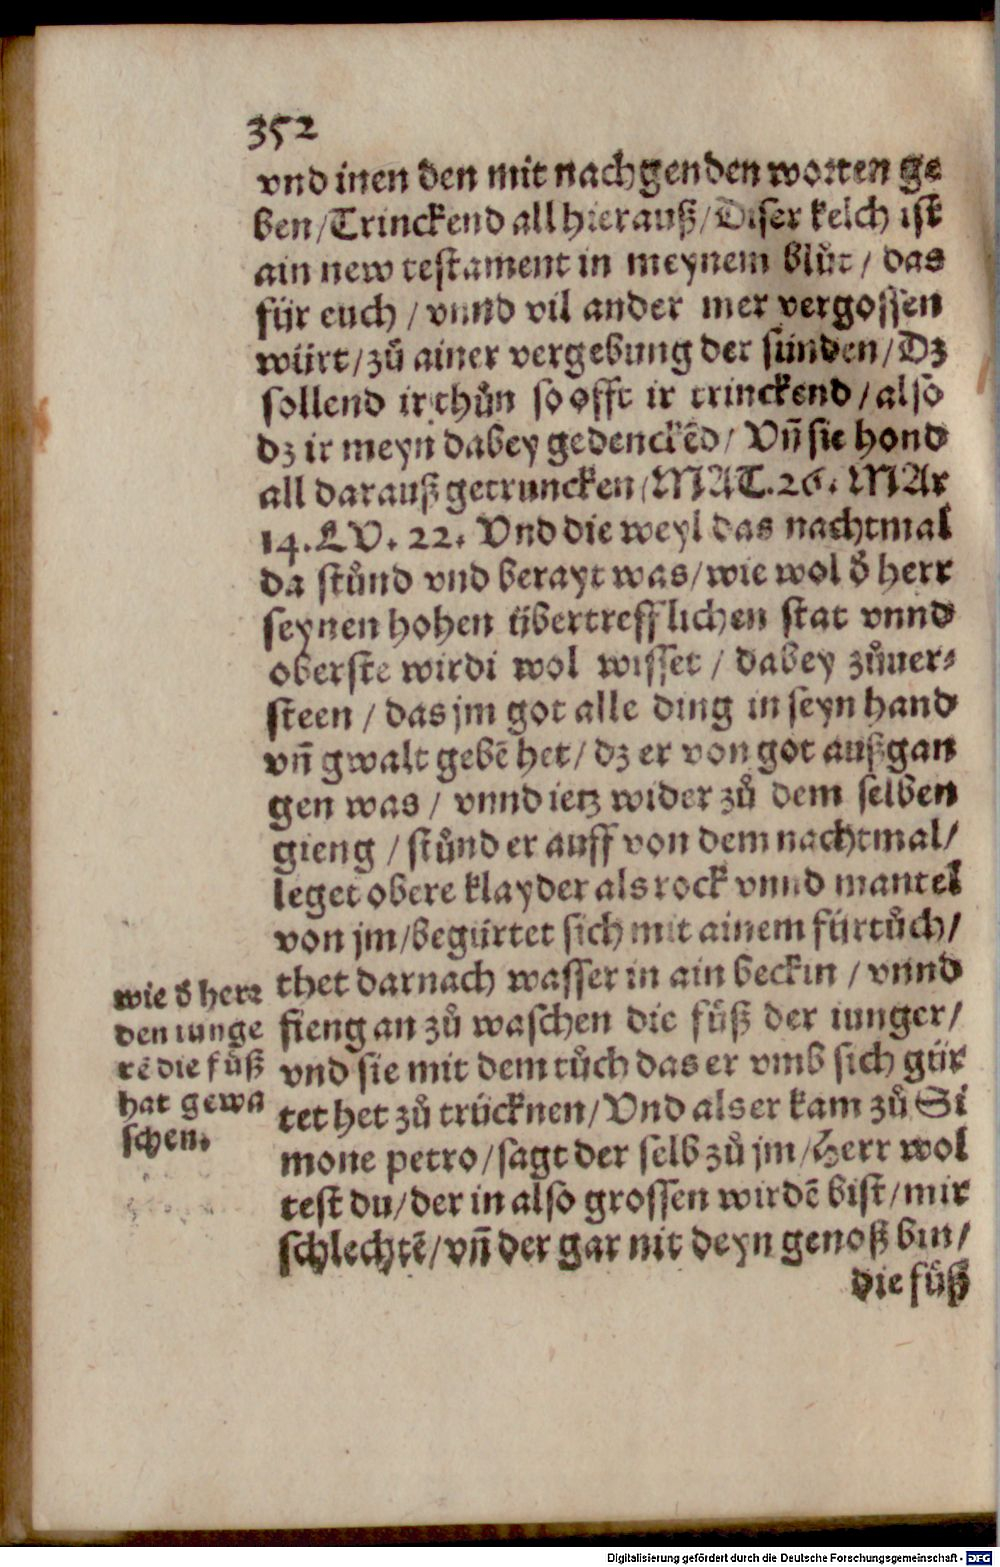 352
vnd inen den mit nachgenden worten ge
ben/Trinckend all hierauß/Diser kelch ist
ain new testament in meynem blůt/ das
für euch / vnnd vil ander mer vergossen
würt/zů ainer vergebung der sünden/Dz
sollend ir thůn so offt ir trinckend/also
dz ir meyn dabey gedenckēd/ Vñ sie hond
all darauß getruncken/MAT.26. MAr
14.LV. 22. Vnd die weyl das nachtmal
da stůnd vnd berayt was/wie wol d̕ herr
seynen hohen übertrefflichen stat vnnd
oberste wirdi wol wisset / dabey zůuer-
steen / das jm got alle ding in seyn hand
vñ gwalt gebē het/ dz er von got außgan
gen was/ vnnd ietz wider zů dem selben
gieng /stůnd er auff von dem nachtmal/
leget obere klayder als rock vnnd mantel
von jm/begürtet sich mit ainem fürtůch/
thet darnach wasser in ain beckin / vnnd
fieng an zů waschen die füß der iunger/
vnd sie mit dem tůch das er vmb sich gür
tet het zů trücknen/Vnd als er kam zů Si
mone petro/sagt der selb zů jm/Herr wol
test du/der in also grossen wirdē bist/mir
schlechtē/vñ der gar nit deyn genoß bin/
die füß
wie d̕ herr
den iunge
rē die füß
hat gewa
schen.
Digitalisierung gefördert durch die Deutsche Forschungsgemeinschaft - DFG